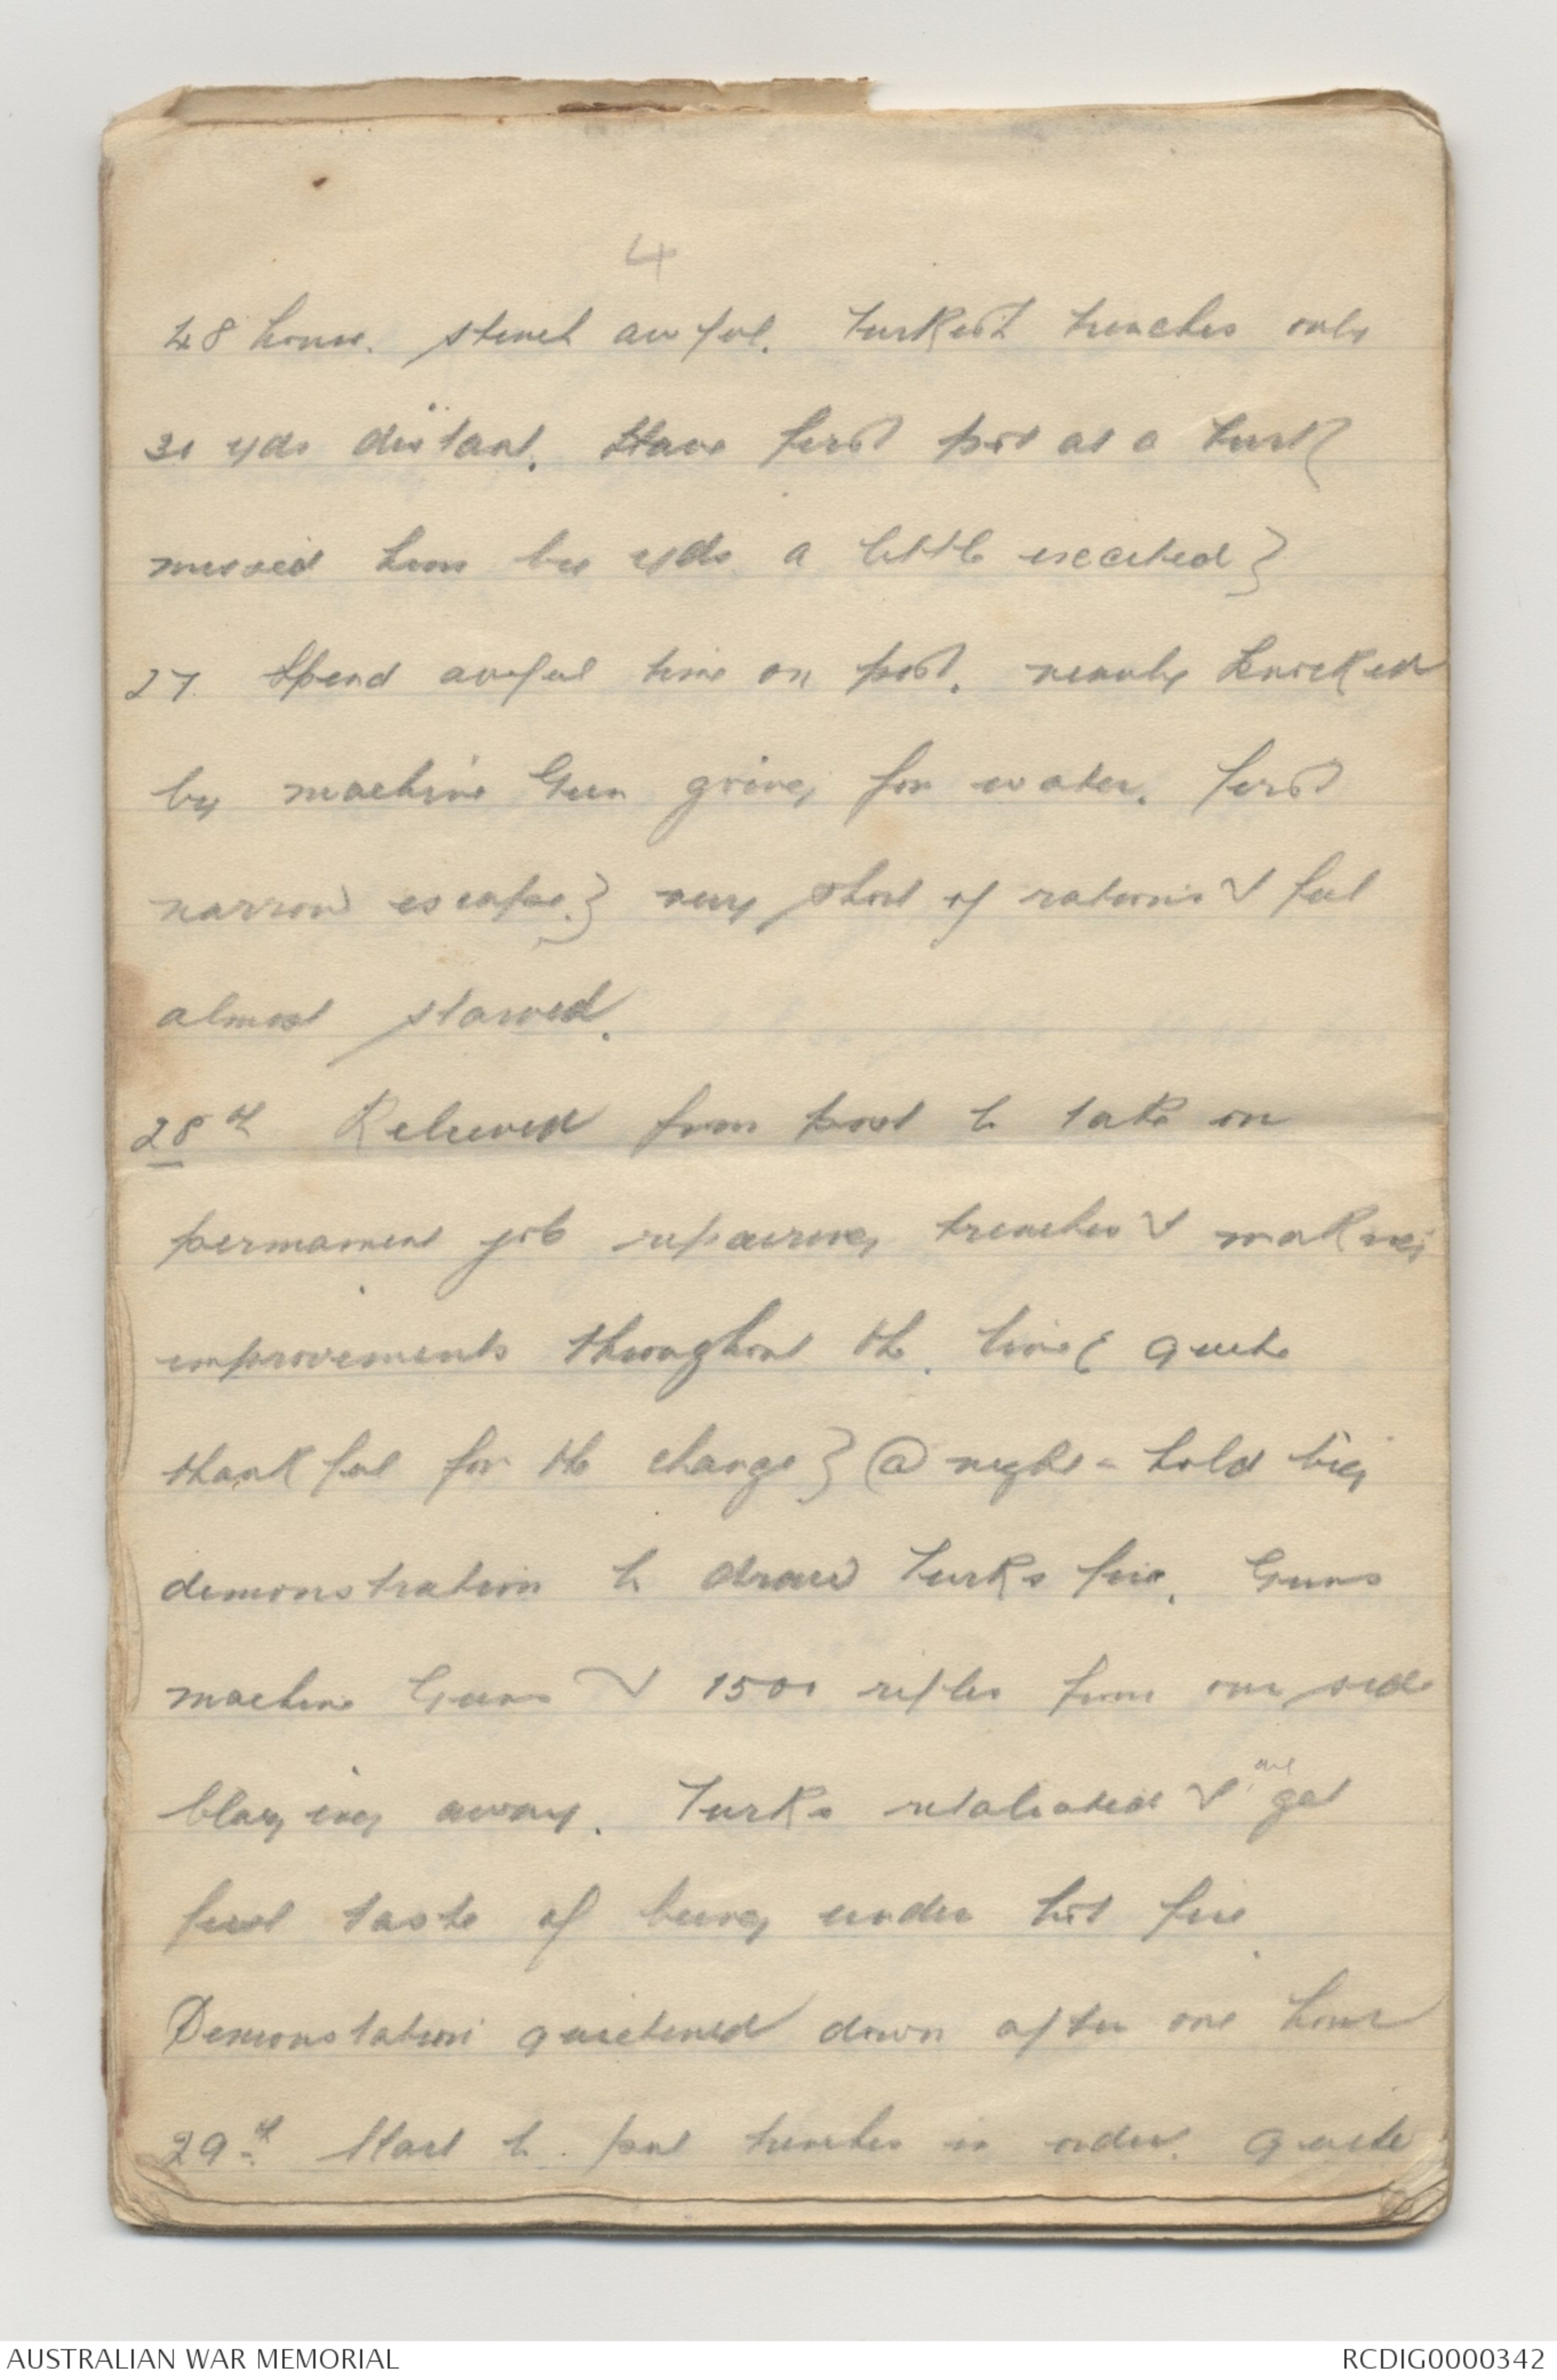 4
48 hours. stench awful. Turkish trenches only
30 yds distant. Have first pot at a Turk {
missed him by yds a little excited }
27 Spend awful time on post. nearly knicked
by machine Gun going for water. first
narrow escape. } very short of rations & feel
almost starved.
28th Relieved from post to take on
permament job repairing trenches & making
improvements throughout the line { quite
thankful for the change } @ night - hold big
demonstration to draw Turks fire. Guns
machine Guns & 1500 rifles from our side
blazing away. Turks retaliated & get
first taste of being under hot fire.
Demonstation quietened down after one hour
29th Start to put trenches in order. Quite
AUSTRALIAN WAR MEMORIAL
RCDIG0000342